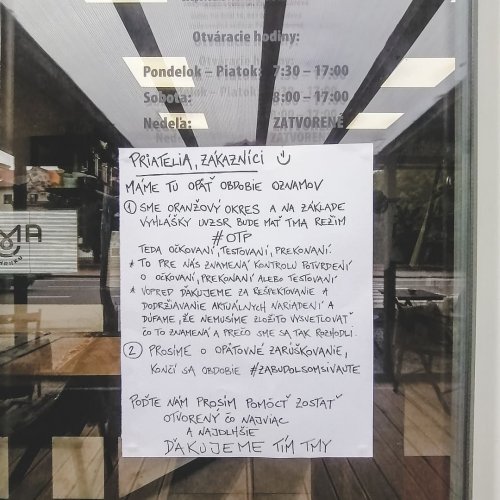 Otváracie hodiny:
Pondelok – Piatok: 7:30 – 17:00
Sobota: 8:00 – 17:00
Nedeľa: ZATVORENÉ
PRIATELIA, ZÁKAZNÍCI
MÁME TU OPÄŤ OBDOBIE OZNAMOV
1 SME ORANŽOVÝ OKRES A NA ZÁKLADE
VYHLÁŠKY ÚVZSR BUDE MAŤ TMA REŽIM
#OTP
TEDA OČKOVANÍ, TESTOVANÍ, PREKONANÍ.
* TO PRE NÁS ZNAMENÁ KONTROLU POTVRDENÍ
O OČKOVANÍ, PREKONANÍ ALEBO TESTOVANÍ
* VOPRED ĎAKUJEME ZA REŠPEKTOVANIE A
DODRŽIAVANIE AKTUÁLNYCH NARIADENÍ A
DÚFAME, ŽE NEMUSÍME ZLOŽITO VYSVETĽOVAŤ
ČO TO ZNAMENÁ A PREČO SME SA TAK ROZHODLI.
2 PROSÍME O OPÄTOVNÉ ZARÚŠKOVANIE,
KONČÍ SA OBDOBIE #ZABUDOLSOMSIVAUTE
POĎTE NÁM PROSÍM POMÔCŤ ZOSTAŤ
OTVORENÝ ČO NAJVIAC
A NAJDLHŠIE
ĎAKUJEME TÍM TMY
MA